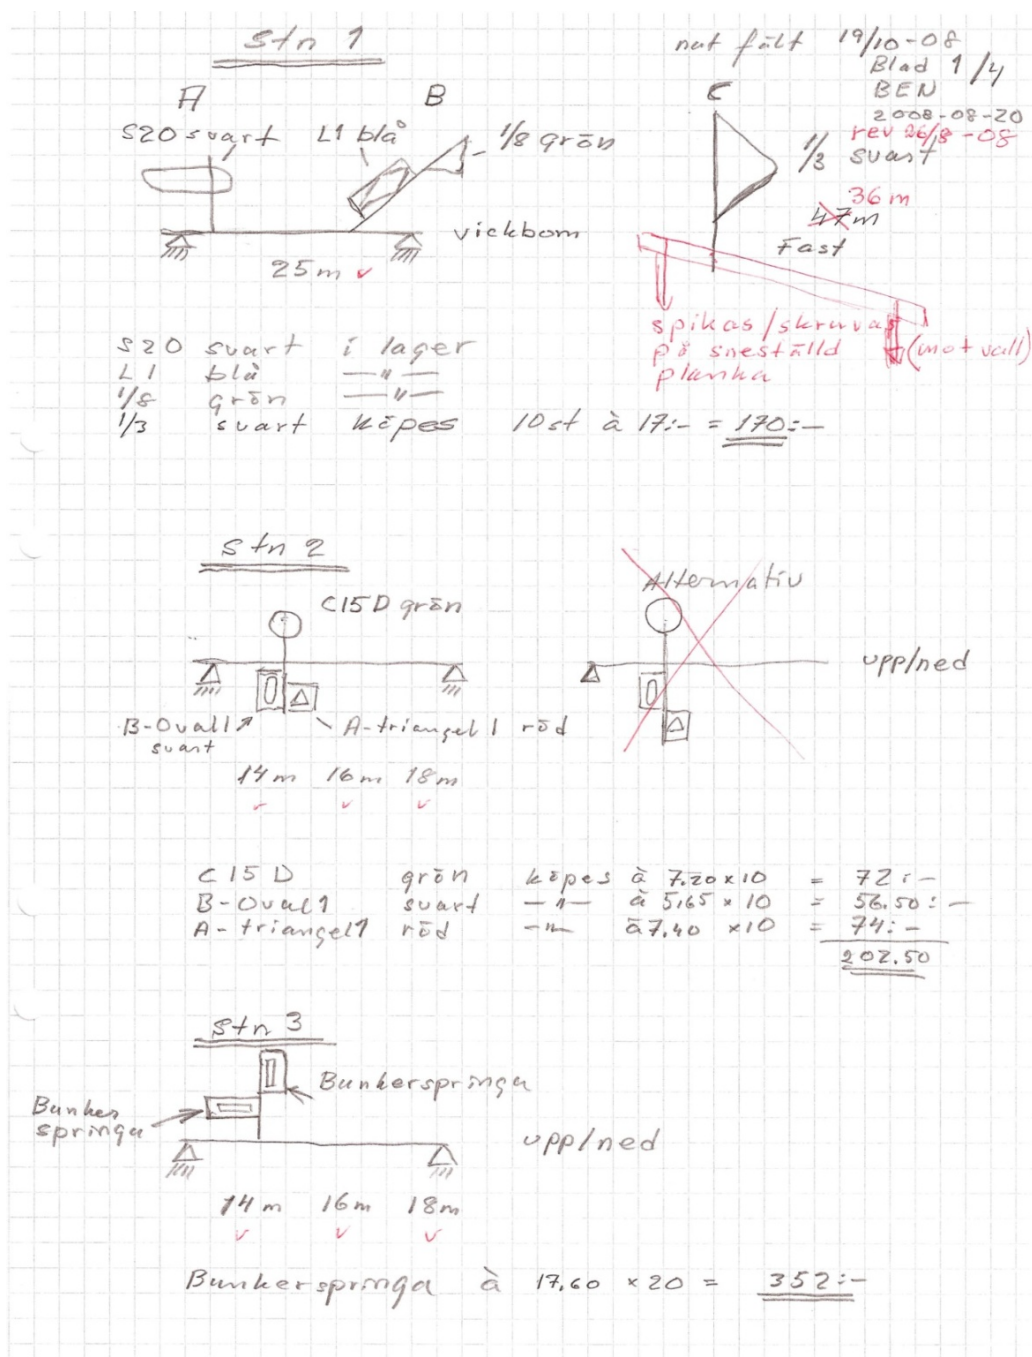 Stn 1
nat fält 19/10-08
Blad 1/4
BEN
2008-08-20
rev 26/8-08
A B C
S20 svart L1 blå 1/8 grön
1/3 svart
36 m
47 m
Fast
vickbom
25 m ✓
spikas/skruvas
på sneställd
planka
(mot vall)
S20 svart i lager
L1 blå —〃—
1/8 grön —〃—
1/3 svart köpes 10st à 17:- = 170:-
Stn 2
C15D grön
Alternativ
upp/ned
B-Oval1
svart
A-triangel 1 röd
14 m 16 m 18 m
✓ ✓ ✓
C15D grön köpes à 7.20 x 10 = 72:-
B-Oval1 svart —〃— à 5,65 x 10 = 56.50:-
A-triangel1 röd —〃— à 7,40 x 10 = 74:-
202.50
Stn 3
Bunkerspringa
Bunker
springa
upp/ned
14 m 16 m 18 m
✓ ✓ ✓
Bunkerspringa à 17,60 x 20 = 352:-